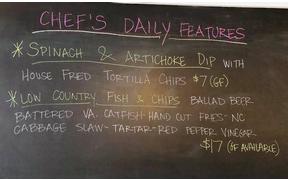 CHEF'S DAILY FEATURES
* SPINACH & ARTICHOKE DIP WITH
HOUSE FRIED TORTILLA CHIPS $7 (GF)
* LOW COUNTRY FISH & CHIPS BALLAD BEER
BATTERED VA. CATFISH-HAND CUT FRIES-NC
CABBAGE SLAW-TARTAR-RED PEPPER VINEGAR
$17 (GF AVAILABLE)